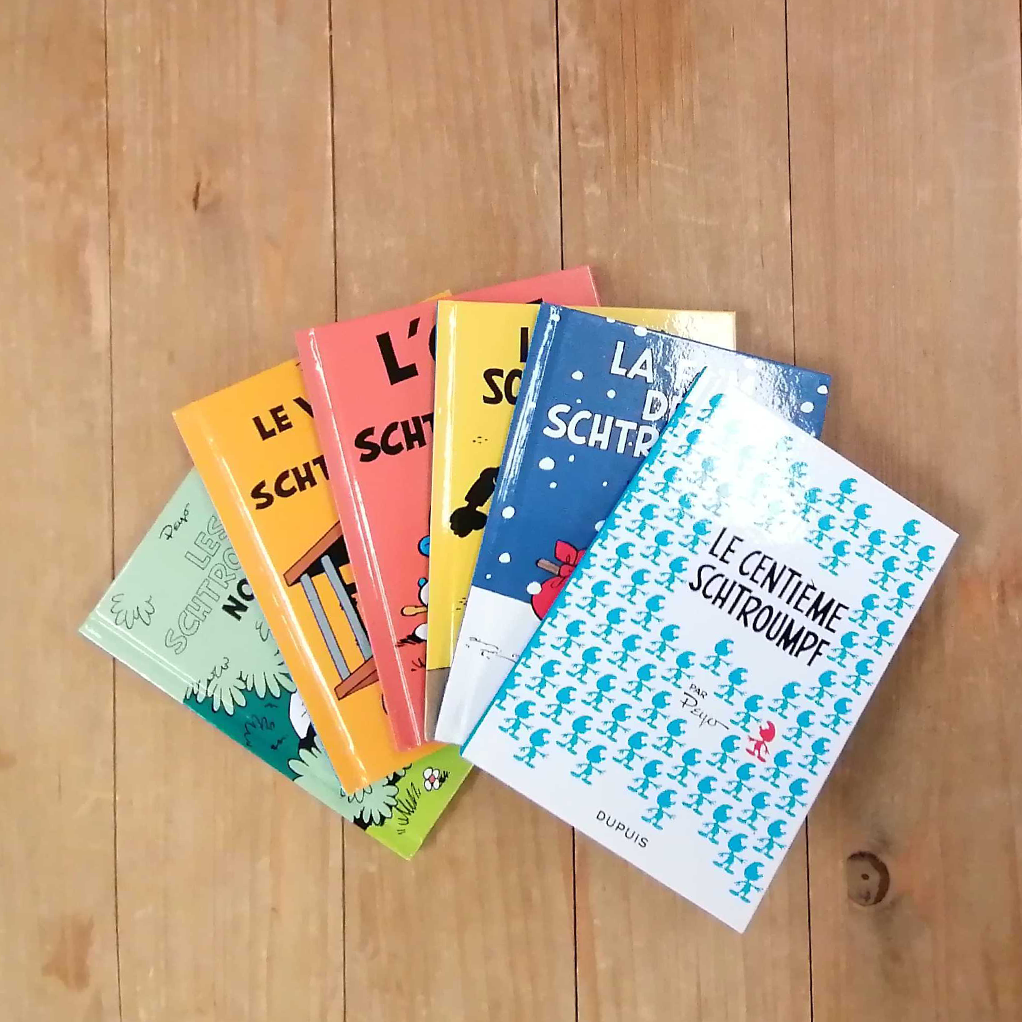 Peyo
LES
SCHTRO
NO
LE V
SCHT
L'
SCHT
L
SO
LA F
D
SCHTR
LE CENTIÈME
SCHTROUMPF
PAR
Peyo
DUPUIS